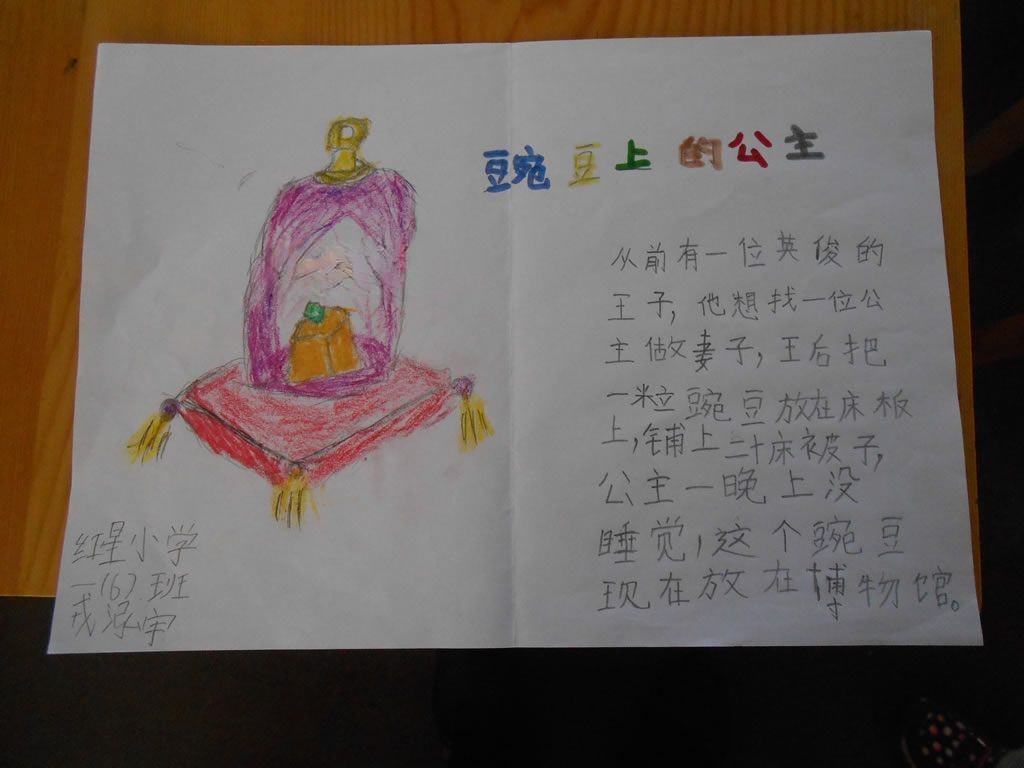 豌豆上的公主
从前有一位英俊的
王子,他想找一位公
主做妻子,王后把
一粒豌豆放在床板
上,铺上二十床被子,
公主一晚上没
睡觉,这个豌豆
现在放在博物馆。
红星小学
一(6)班
戎